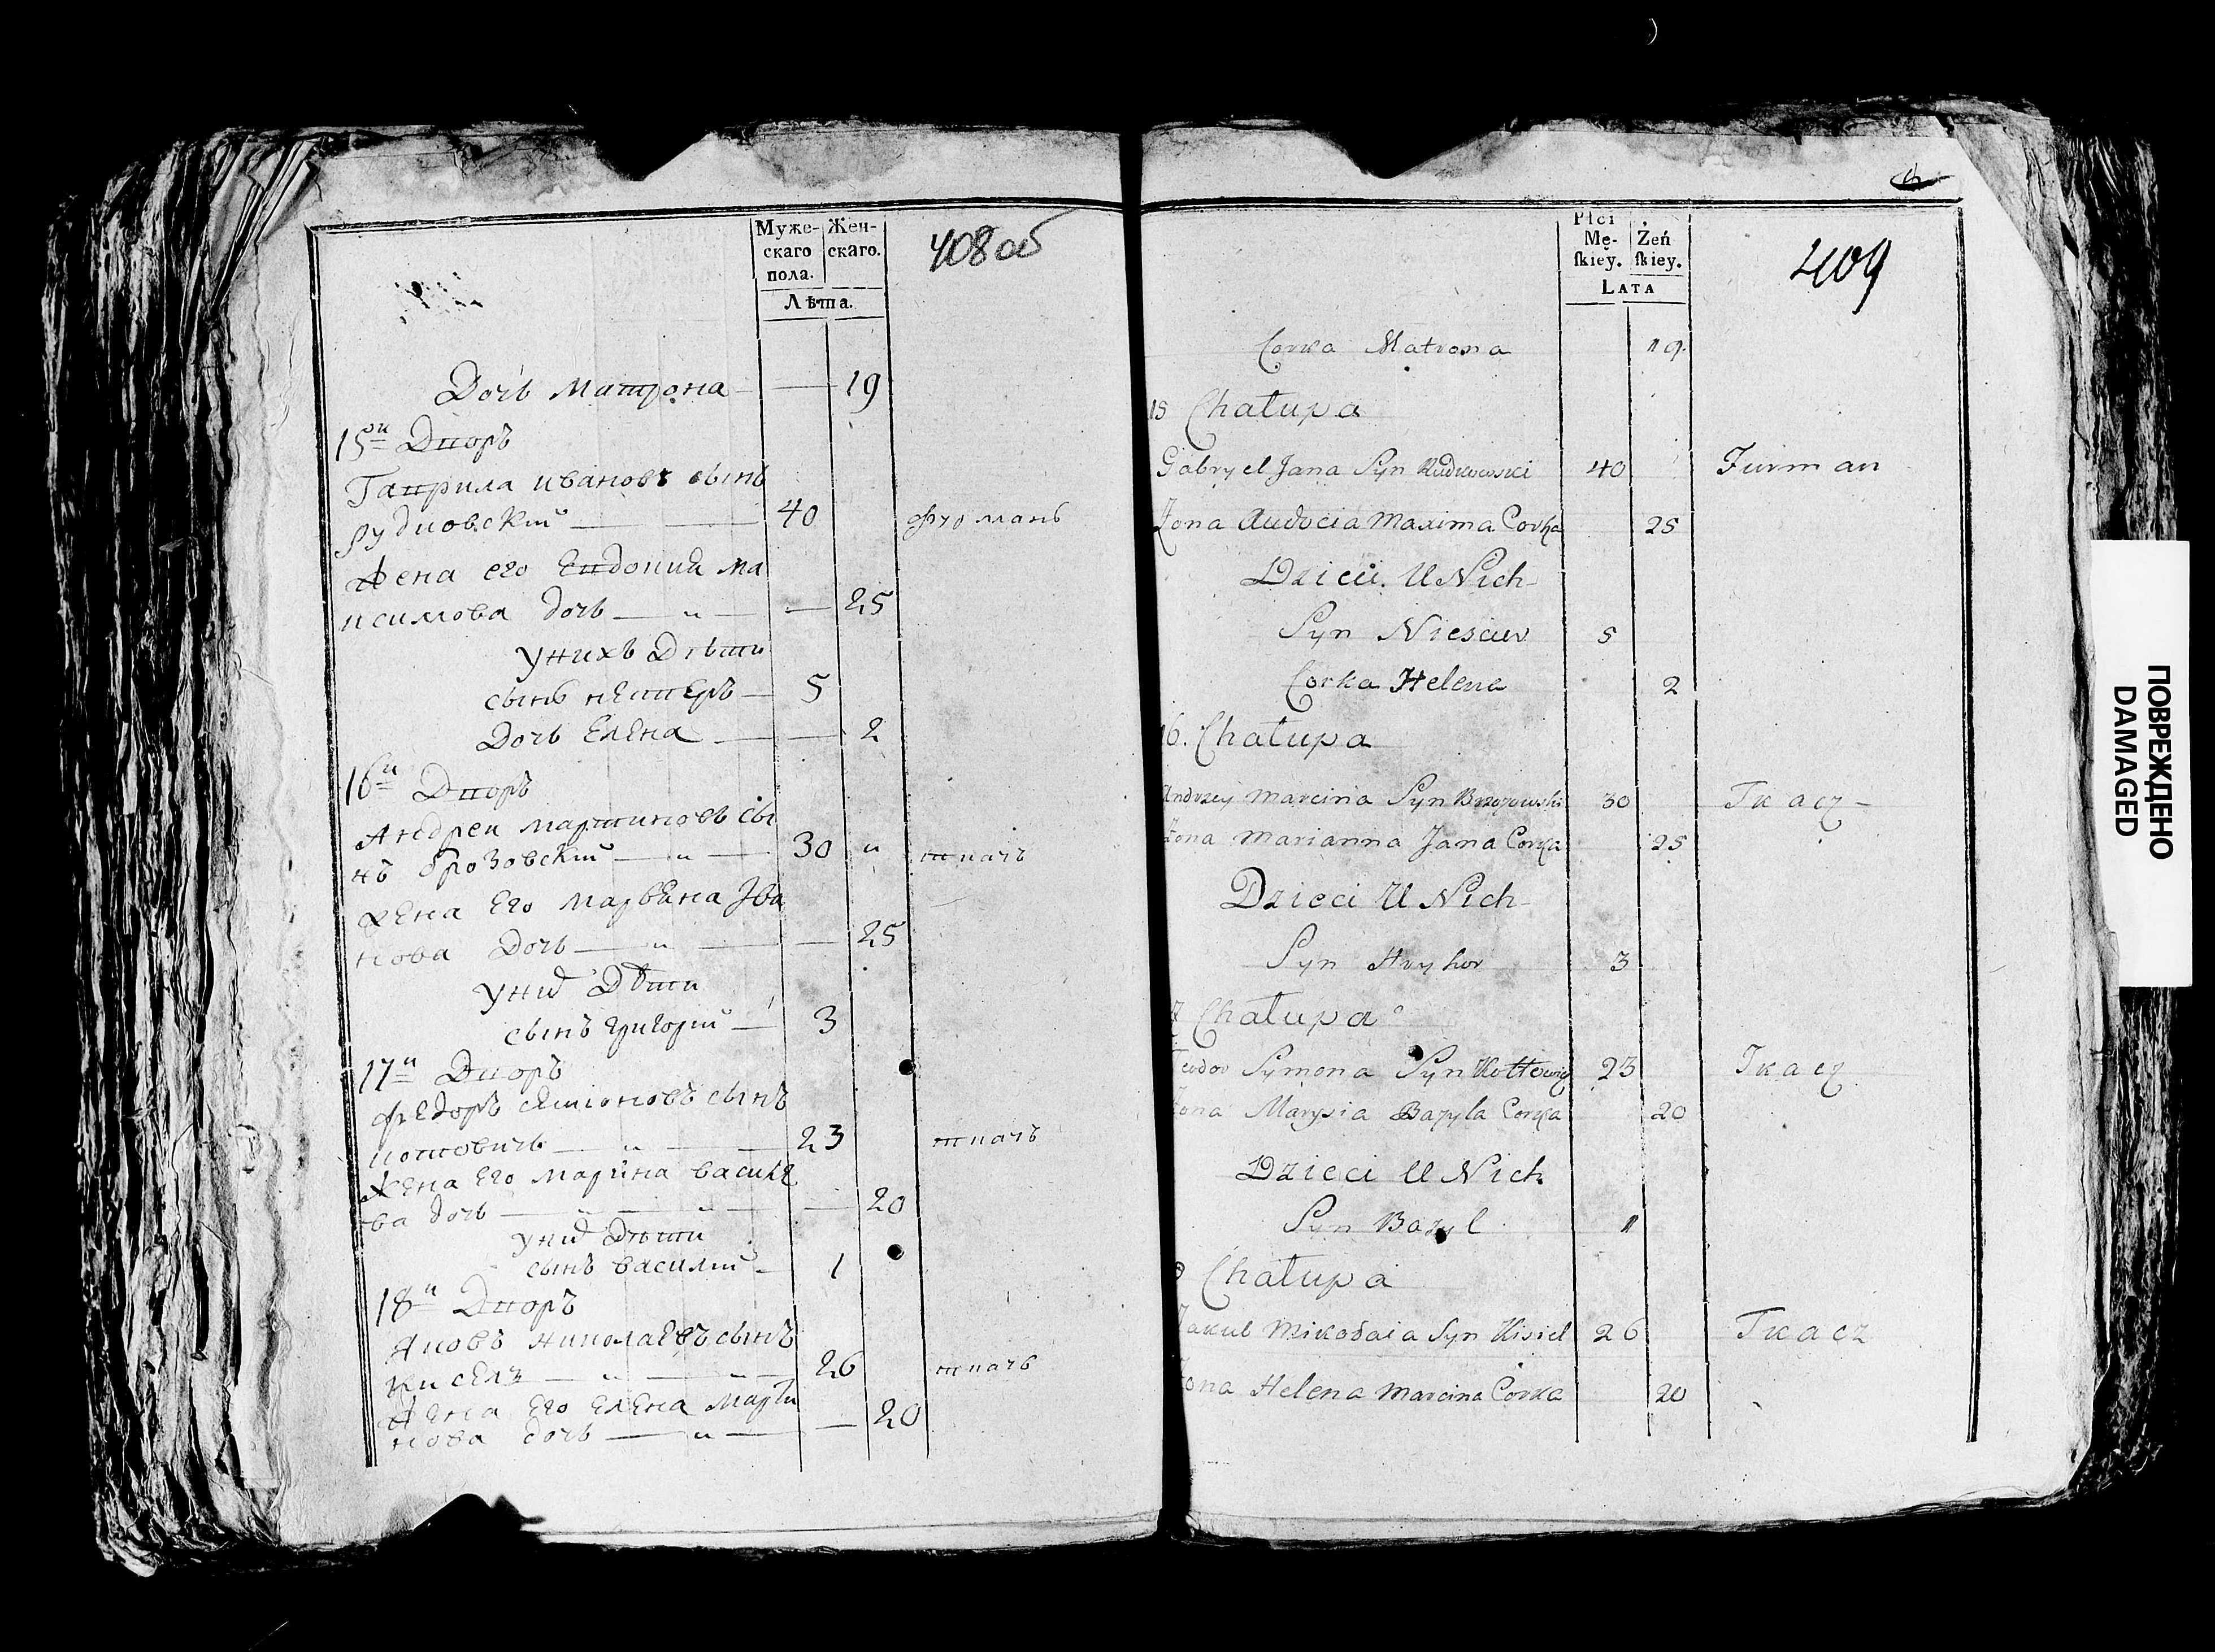 Муже-
скаго
пола.
Жен-
скаго.
Лѣта.
408 об
Дочь Матрона — — 19
15й Дворъ
Гаврила Ивановъ сынъ
Рудковскій — 40 фурманъ
Жена его Евдокия Ма
ксимова дочь — „ — — 25
У нихъ Дѣти
сынъ 5
Дочь Елена — — 2
16й Дворъ
Андреи Мартиновъ сы
нъ Брозовскій — „ — 30 „ ткачъ
Жена Его Марьяна Ива
нова Дочь — „ — — 25
У них Дѣти
сынъ григорій — 3
17й Дворъ
Федоръ Семионовъ сынъ
Котовичь — „ — 23 ткачъ
Жена Его Марина Василе
ва дочь — „ — „ — — 20
У них Дѣти
сынъ василій — 1
18й Дворъ
Яковъ Николаевъ сынъ
Кисель — „ — „ — 26 ткачь
Жена Его Елена Марти
нова дочь — „ — — 20
Płci
Mę-
ſkiey.
Żeń
ſkiey.
LATA
409
Corka Matrona 19.
15 Chałupa
Gabryel Jana Syn Rudkowski 40 Furman
Zona Audocia Maxima Corka 25
Dzieci U Nich
Syn 5
Corka Helena 2
16. Chałupa
Andrzey Marcina Syn Brzozowski 30 Tkacz —
Zona Marianna Jana Corka 25
Dzieci U Nich
Syn Hryhor 3
7 Chałupa
Teodor Symona Syn Kottowicz 23 Tkacz
Zona Marysia Bazyla Corka 20
Dzieci U Nich
Syn Bazyl 1
8 Chałupa
Jakub Mikołaia Syn Kisiel 26 Tkacz
Zona Helena Marcina Corka 20
ПОВРЕЖДЕНО
DAMAGED